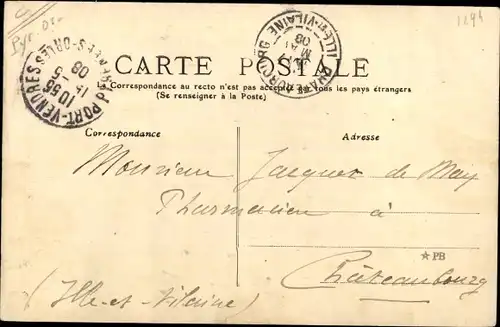 Pyr. Or.
1294
PORT-VENDRES
PYRÉNÉES-ORLES
10 55
14 - 5
08
CHATEAUBOURG
ILLE-ET-VILAINE
MAI
08
CARTE POSTALE
Correspondance au recto n'est pas acceptée par tous les pays étrangers
(Se renseigner à la Poste)
Correspondance
Adresse
Monsieur Jacques de May
Pharmacien à
Châteaubourg
(Ille-et-Vilaine)
★PB